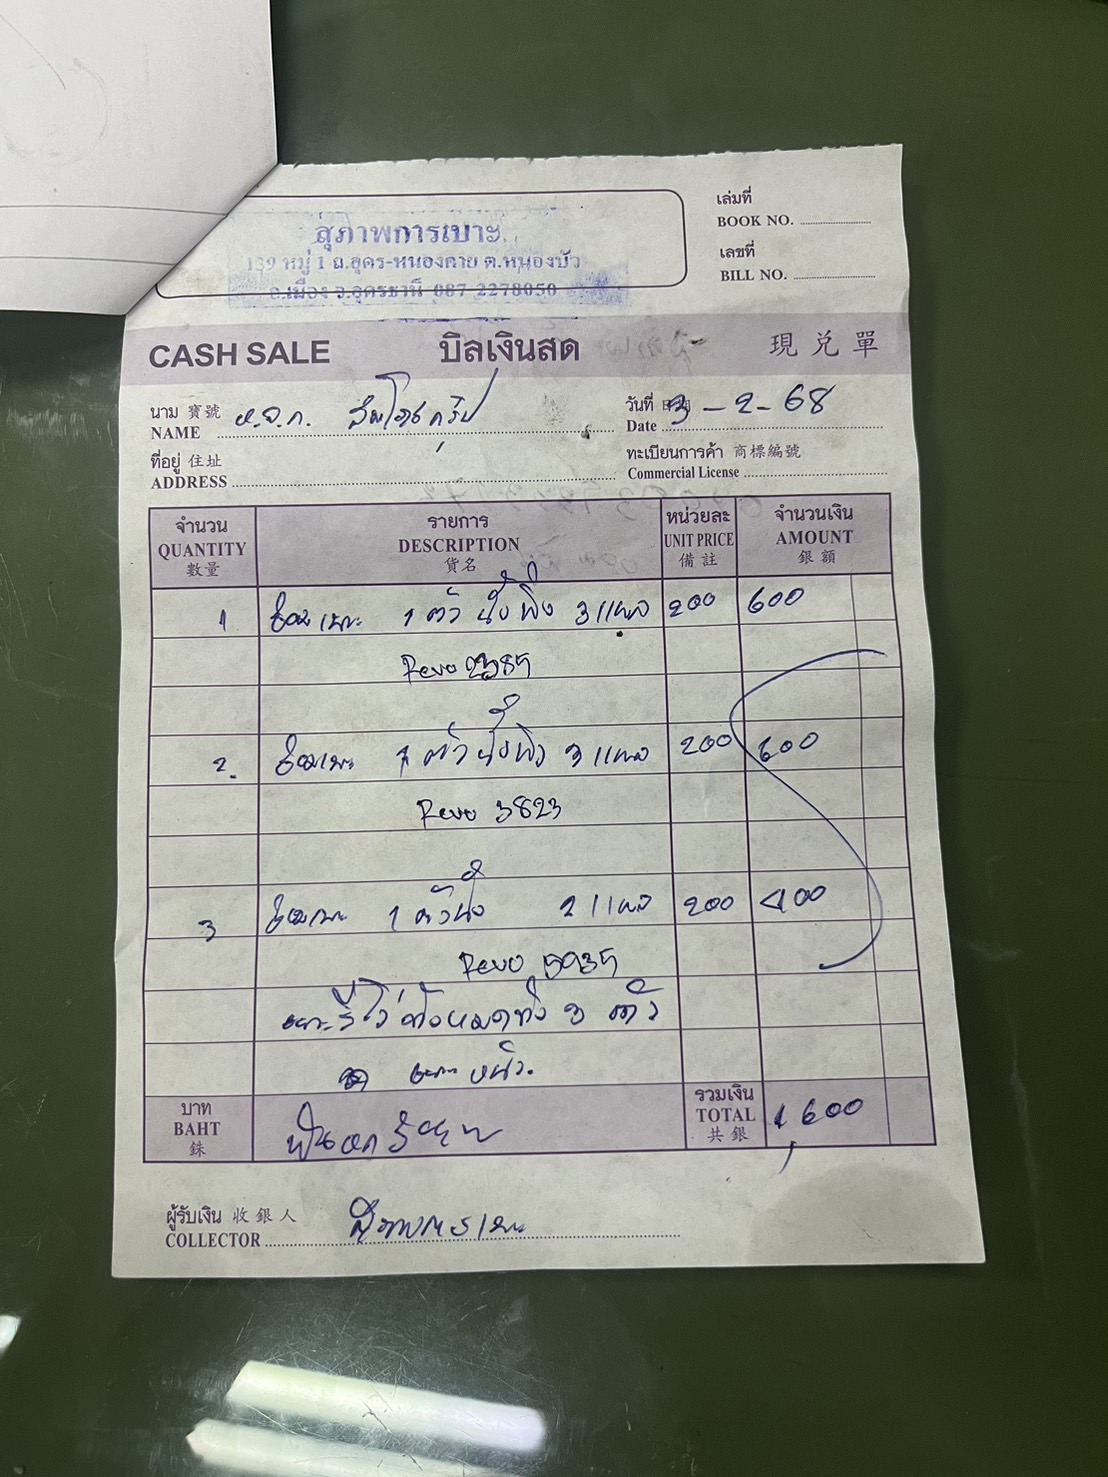 สุภาพการเบาะ
139 หมู่ 1 ถ.อุดร-หนองคาย ต.หนองบัว
อ.เมือง จ.อุดรธานี 087-2278050
เล่มที่
BOOK NO.
เลขที่
BILL NO.
CASH SALE บิลเงินสด 現兌單
นาม 寶號 NAME ห.จ.ก.
วันที่ Date 3-2-68
ที่อยู่ 住址
ADDRESS
ทะเบียนการค้า 商標編號
Commercial License
จำนวน QUANTITY 數量
รายการ DESCRIPTION 貨名
หน่วยละ UNIT PRICE 備註
จำนวนเงิน AMOUNT 銀額
1 ซ่อมเบาะ 1 ตัว นั่งพิง 3 แผล 200 600
Revo
2. ซ่อมเบาะ 1 ตัว นั่งพิง 3 แผล 200 600
Revo 3823
3 ซ่อมเบาะ 1 ตัวนั่ง 2 แผล 200 400
Revo 5935
เบาะรีโว่ทั้งหมดทั้ง 3 ตัว
เบาะหนัง
บาท BAHT 銖
รวมเงิน TOTAL 共銀 1,600
ผู้รับเงิน 收銀人
COLLECTOR สุภาพการเบาะ